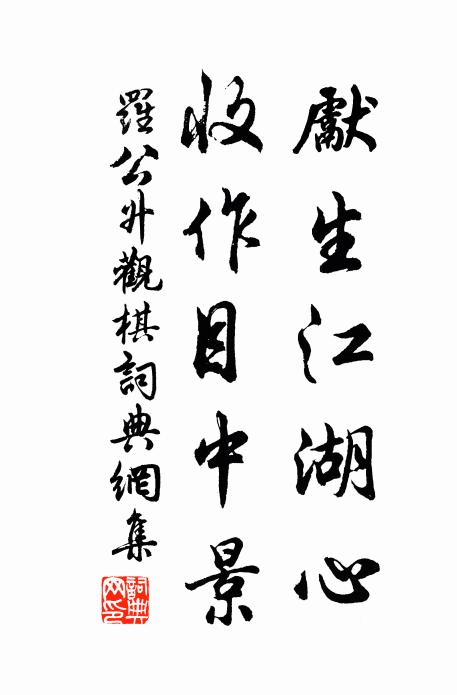 獻生江湖心
收作目中景
羅公升觀棋詞典網集
詞典
网印